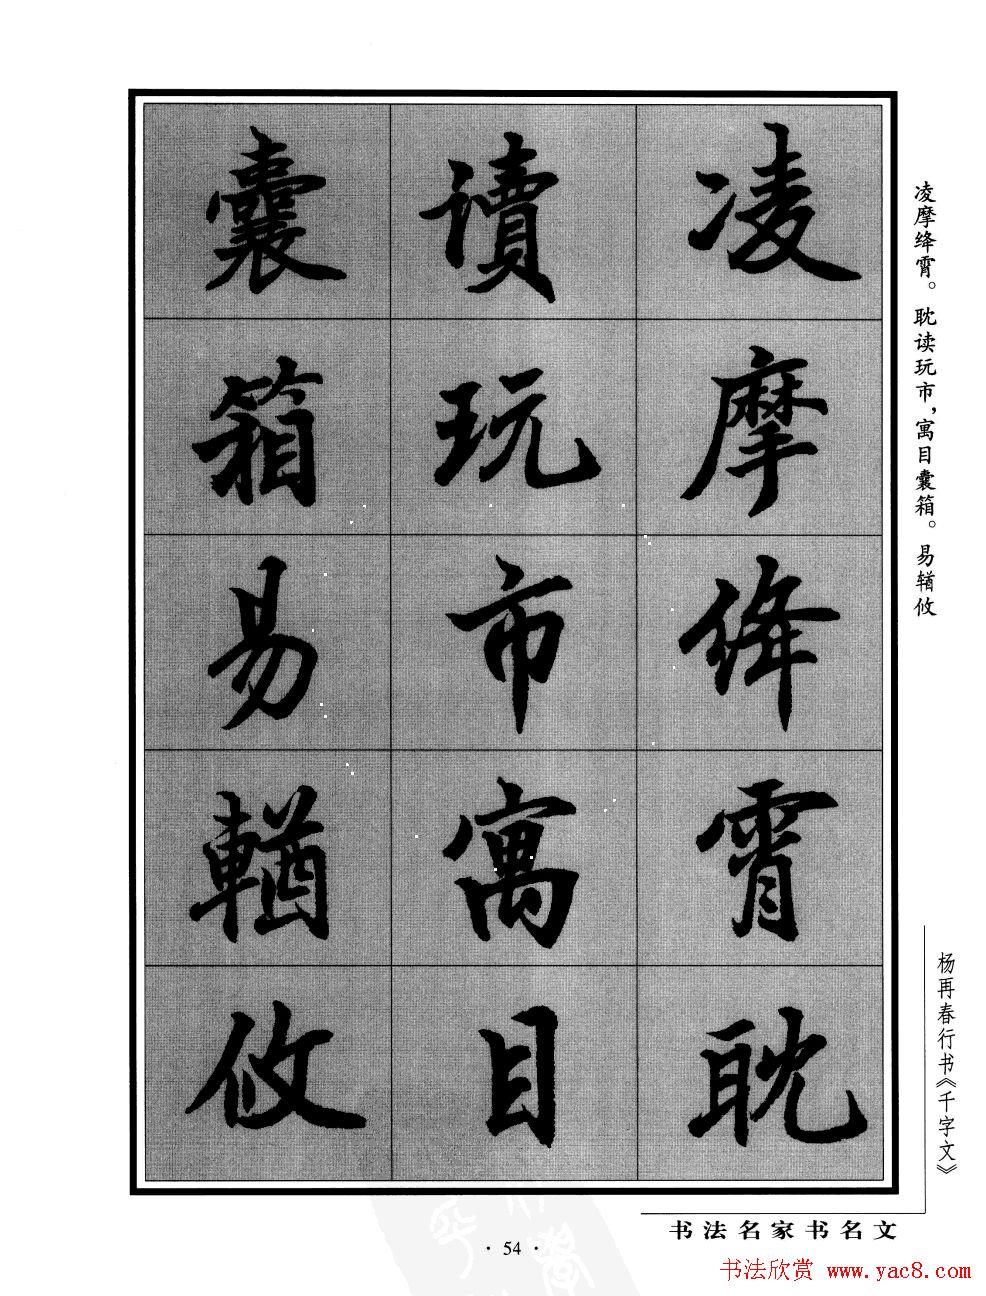 凌摩绛霄
耽
讀玩市寓目
囊箱易輶攸
凌摩绛霄。耽读玩市，寓目囊箱。易輶攸
杨再春行书《千字文》
书法名家书名文
· 54 ·
书法欣赏 www.yac8.com